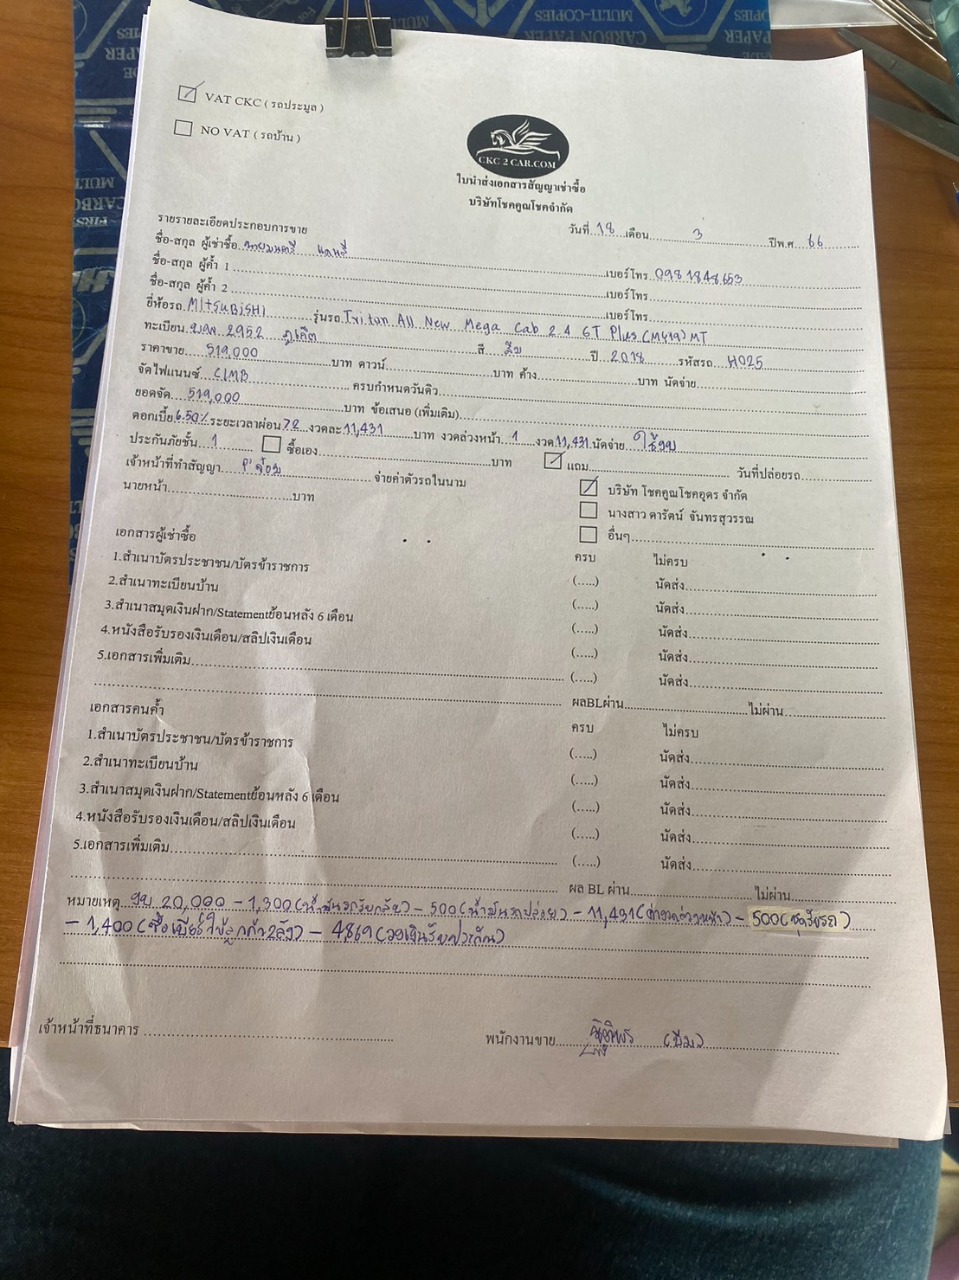 VAT CKC ( รถประมูล )
NO VAT ( รถบ้าน )
CKC 2 CAR.COM
ใบนำส่งเอกสารสัญญาเช่าซื้อ
บริษัทโชคคูณโชคจำกัด
รายรายละเอียดประกอบการขาย
วันที่ 18 เดือน 3 ปีพ.ศ 66
ชื่อ-สกุล ผู้เช่าซื้อ เบอร์โทร 0981848653
ชื่อ-สกุล ผู้ค้ำ 1 เบอร์โทร
ชื่อ-สกุล ผู้ค้ำ 2 เบอร์โทร
ยี่ห้อรถ MITSUBISHI รุ่นรถ Triton All New Mega Cab 2.4 GT Plus (MY19) MT
ทะเบียน 2952 ภูเก็ต สี ปี 2018 รหัสรถ H025
ราคาขาย 519,000 บาท ดาวน์ บาท ค้าง บาท นัดจ่าย
จัดไฟแนนซ์ CIMB ครบกำหนดวันดิว
ยอดจัด 519,000 บาท ข้อเสนอ (เพิ่มเติม)
ดอกเบี้ย 6.50% ระยะเวลาผ่อน 72 งวดละ 11,431 บาท งวดล่วงหน้า 1 งวด 11,431 นัดจ่าย ใช้งบ
ประกันภัยชั้น 1 ซื้อเอง บาท แถม วันที่ปล่อยรถ
เจ้าหน้าที่ทำสัญญา จ่ายค่าตัวรถในนาม บริษัท โชคคูณโชคอุดร จำกัด
นายหน้า บาท นางสาว ดารัตน์ จันทรสุวรรณ
อื่นๆ
เอกสารผู้เช่าซื้อ ครบ ไม่ครบ
1.สำเนาบัตรประชาชน/บัตรข้าราชการ (.....) นัดส่ง
2.สำเนาทะเบียนบ้าน (.....) นัดส่ง
3.สำเนาสมุดเงินฝาก/Statementย้อนหลัง 6 เดือน (.....) นัดส่ง
4.หนังสือรับรองเงินเดือน/สลิปเงินเดือน (.....) นัดส่ง
5.เอกสารเพิ่มเติม (.....) นัดส่ง
ผลBLผ่าน ไม่ผ่าน
เอกสารคนค้ำ ครบ ไม่ครบ
1.สำเนาบัตรประชาชน/บัตรข้าราชการ (.....) นัดส่ง
2.สำเนาทะเบียนบ้าน (.....) นัดส่ง
3.สำเนาสมุดเงินฝาก/Statementย้อนหลัง 6 เดือน (.....) นัดส่ง
4.หนังสือรับรองเงินเดือน/สลิปเงินเดือน (.....) นัดส่ง
5.เอกสารเพิ่มเติม (.....) นัดส่ง
ผล BL ผ่าน ไม่ผ่าน
หมายเหตุ งบ 20,000 - 1,300 - 500 (น้ำมันรถปล่อย) - 11,431 (ค่างวดล่วงหน้า) - 500
- 1,400 (ซื้อเบียร์ให้ลูกค้า 2 ลัง) - 4869
เจ้าหน้าที่ธนาคาร พนักงานขาย